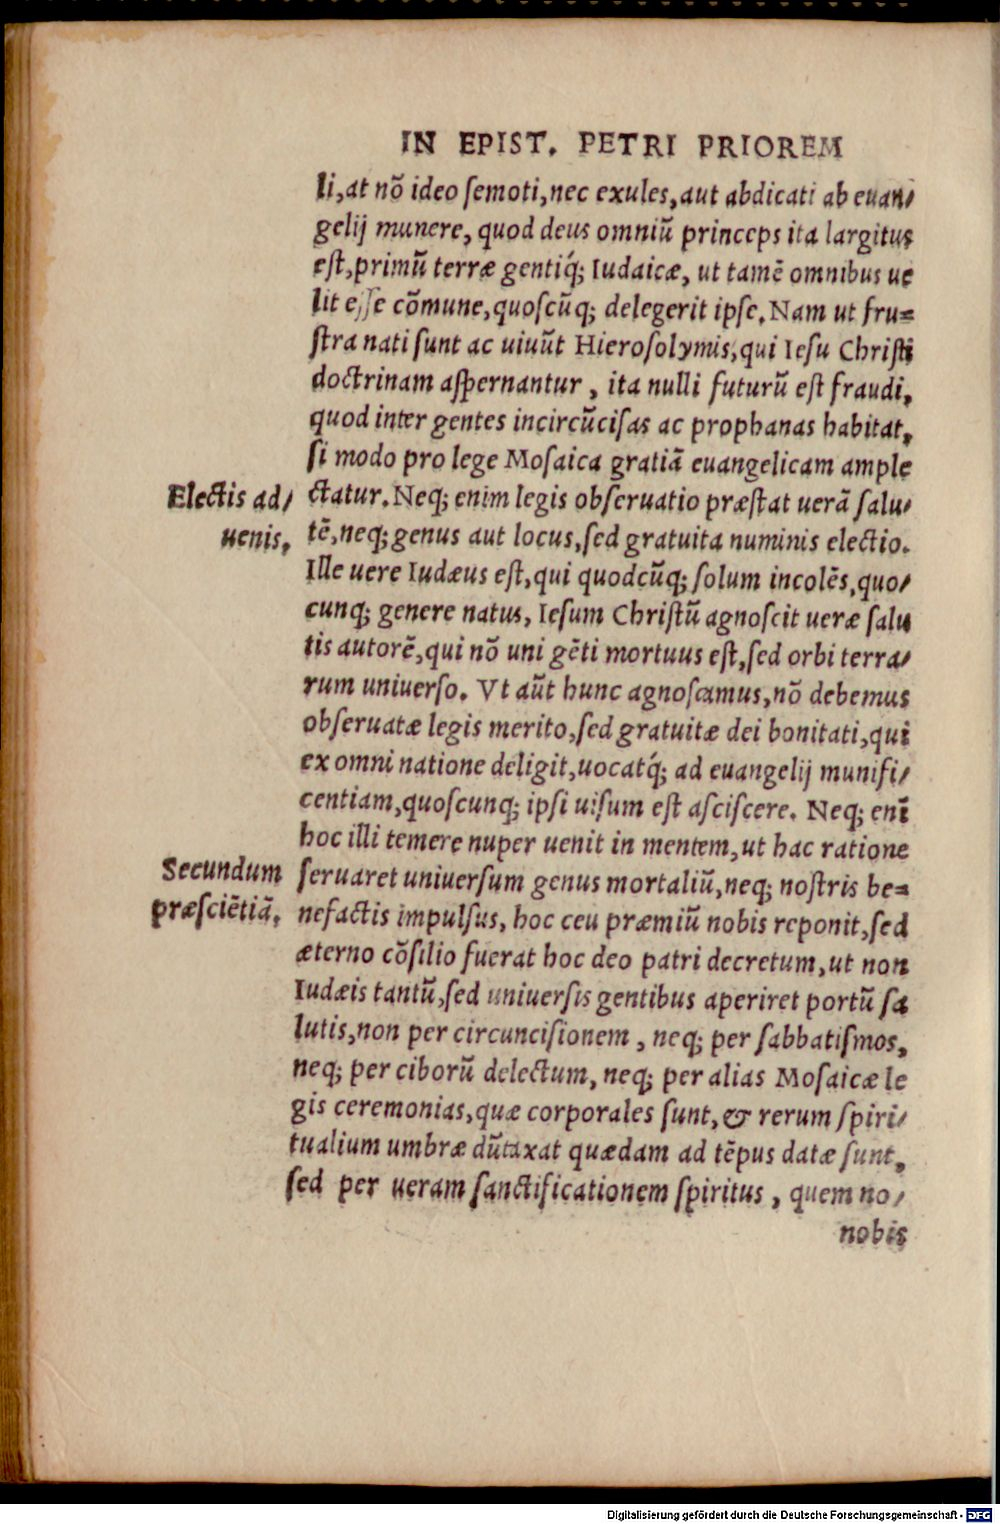 IN EPIST. PETRI PRIOREM
li,at nõ ideo ſemoti,nec exules,aut abdicati ab euan/
gelij munere, quod deus omniũ princeps ita largitus
eſt,primũ terræ gentiq́; Iudaicæ, ut tamẽ omnibus ue
lit eſſe cõmune,quoſcũq; delegerit ipſe. Nam ut fru=
ſtra nati ſunt ac uiuũt Hieroſolymis,qui Ieſu Chriſti
doctrinam aſpernantur , ita nulli futurũ eſt fraudi,
quod inter gentes incircũciſas ac prophanas habitat,
ſi modo pro lege Moſaica gratiã euangelicam ample
Electis ad/
uenis.
ctatur. Neq; enim legis obſeruatio præſtat uerã ſalu/
tẽ,neq; genus aut locus,ſed gratuita numinis electio.
Ille uere Iudæus eſt,qui quodcũq; ſolum incolẽs,quo/
cunq; genere natus, Ieſum Chriſtũ agnoſcit ueræ ſalu
tis autorẽ,qui nõ uni gẽti mortuus eſt,ſed orbi terra/
rum uniuerſo. Vt aũt hunc agnoſcamus,nõ debemus
obſeruatæ legis merito,ſed gratuitæ dei bonitati,qui
ex omni natione deligit,uocatq́; ad euangelij munifi/
centiam,quoſcunq; ipſi uiſum eſt aſciſcere. Neq; enĩ
hoc illi temere nuper uenit in mentem,ut hac ratione
Secundum
præſciẽtiã.
ſeruaret uniuerſum genus mortaliũ,neq; noſtris be=
nefactis impulſus, hoc ceu præmiũ nobis reponit,ſed
æterno cõſilio fuerat hoc deo patri decretum,ut non
Iudæis tantũ,ſed uniuerſis gentibus aperiret portũ ſa
lutis,non per circunciſionem , neq; per ſabbatiſmos,
neq; per ciborũ delectum, neq; per alias Moſaicæ le
gis ceremonias,quæ corporales ſunt,& rerum ſpiri/
tualium umbræ dũtaxat quædam ad tẽpus datæ ſunt,
ſed per ueram ſanctificationem ſpiritus , quem no/
nobis
Digitalisierung gefördert durch die Deutsche Forschungsgemeinschaft - DFG